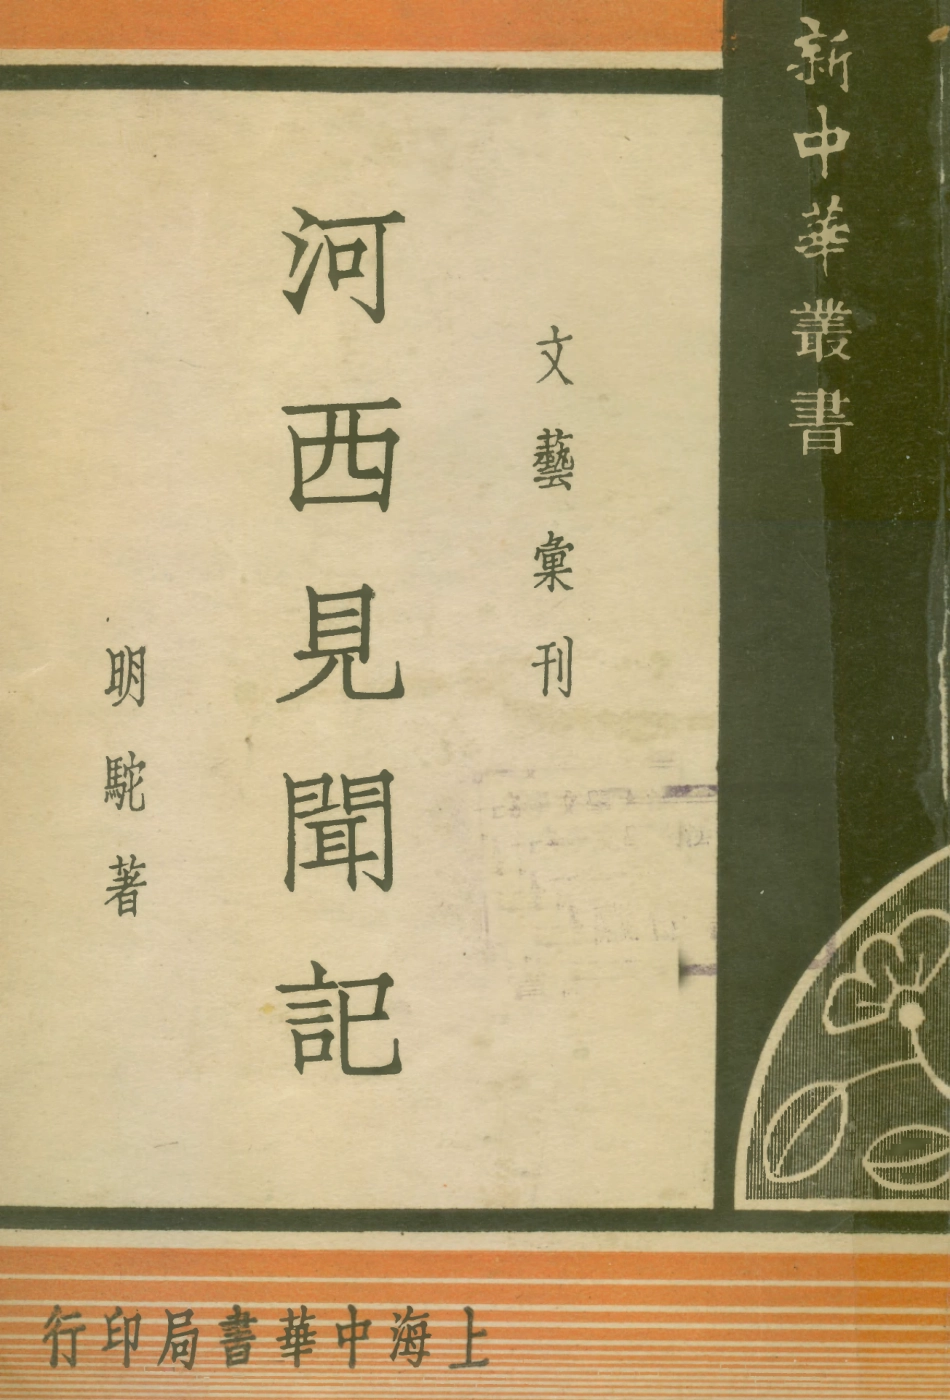 新中華叢書
文藝彙刊
河西見聞記
明駝著
上海中華書局印行